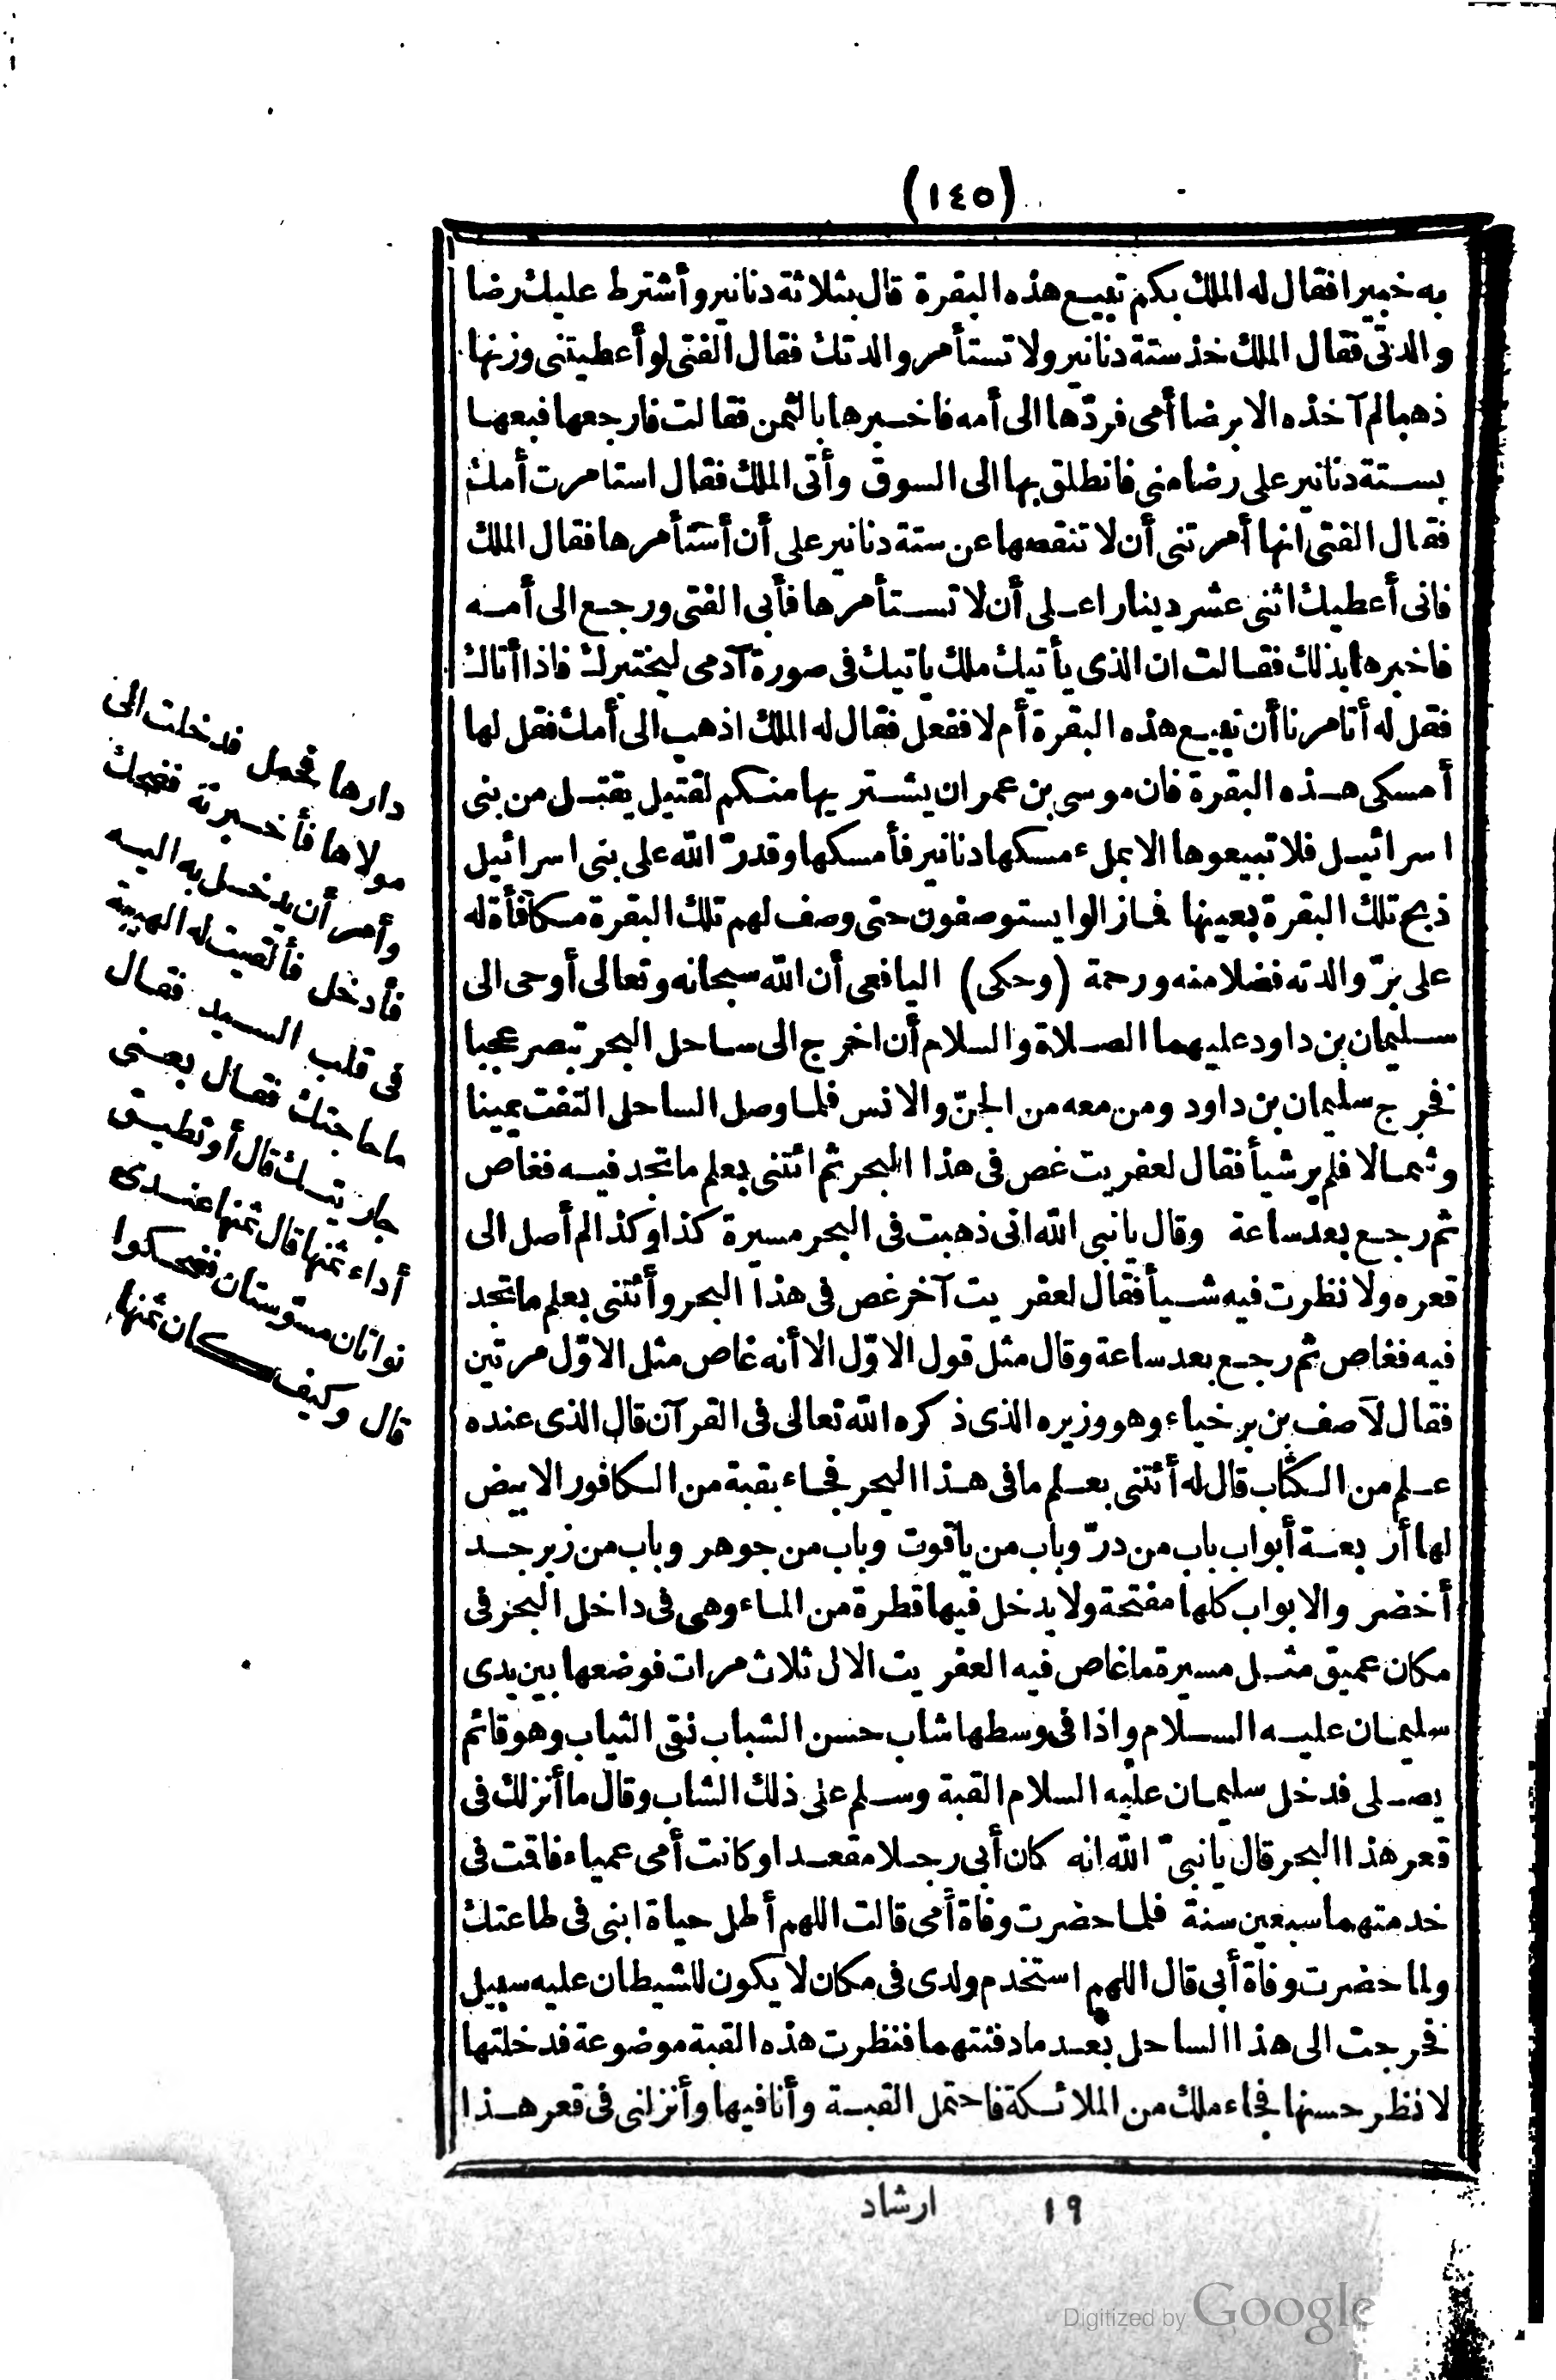 (١٤٥)
به خبيرا فقال له الملك بكم تبيع هذه البقرة قال بثلاثة دنانير وأشترط عليك رضا
والدتى فقال الملك خذ ستة دنانير ولا تستأمر والدتك فقال الفتى لو أعطيتنى وزنها
ذهبا لم آخذه الا برضا أمى فردّها الى أمه فاخبرها بالثمن فقالت فارجعها فبعها
بستة دنانير على رضا منى فانطلق بها الى السوق وأتى الملك فقال استامرت أمك
فقال الفتى انها أمرتنى أن لا تنقصها عن ستة دنانير على أن أستأمرها فقال الملك
فانى أعطيك اثنى عشر دينارا على أن لا تستأمرها فأبى الفتى ورجع الى أمه
فاخبرها بذلك فقالت ان الذى يأتيك ملك ياتيك فى صورة آدمى ليختبرك فاذا أتاك
فقل له أتامرنا أن نبيع هذه البقرة أم لا ففعل فقال له الملك اذهب الى أمك فقل لها
أمسكى هذه البقرة فان موسى بن عمران يشتريها منكم لقتيل يقتل من بنى
اسرائيل فلا تبيعوها الا بملء مسكها دنانير فأمسكها وقدرّ الله على بنى اسرائيل
ذبح تلك البقرة بعينها فمازالوا يستوصفون حتى وصف لهم تلك البقرة مكافأة له
على برّ والدته فضلا منه ورحمة (وحكى) اليافعى أن الله سبحانه وتعالى أوحى الى
سليمان بن داود عليهما الصلاة والسلام أن اخرج الى ساحل البحر تبصر عجبا
فخرج سليمان بن داود ومن معه من الجنّ والانس فلما وصل الساحل التفت يمينا
وشمالا فلم ير شيأ فقال لعفريت غص فى هذا البحر ثم ائتنى بعلم ما تجد فيه فغاص
ثم رجع بعد ساعة وقال يا نبى الله انى ذهبت فى البحر مسيرة كذا وكذا لم أصل الى
قعره ولا نظرت فيه شيأ فقال لعفريت آخر غص فى هذا البحر وأئتنى بعلم ما تجد
فيه فغاص ثم رجع بعد ساعة وقال مثل قول الاوّل الا أنه غاص مثل الاوّل مرتين
فقال لآصف بن برخياء وهو وزيره الذى ذكره الله تعالى فى القرآن قال الذى عنده
علم من الكتاب قال له أئتنى بعلم ما فى هذا البحر فجاء بقبة من الكافور الابيض
لها أربعة أبواب باب من درّ وباب من ياقوت وباب من جوهر وباب من زبرجد
أخضر والابواب كلها مفتحة ولا يدخل فيها قطرة من الماء وهى فى داخل البحر فى
مكان عميق مثل مسيرة ما غاص فيه العفريت الال ثلاث مرات فوضعها بين يدى
سليمان عليه السلام واذا فى وسطها شاب حسن الشباب نقى الثياب وهو قائم
يصلى فدخل سليمان عليه السلام القبة وسلم على ذلك الشاب وقال ما أنزلك فى
قعر هذا البحر قال يا نبىّ الله انه كان أبى رجلا مقعدا وكانت أمى عمياء فاقت فى
خدمتهما سبعين سنة فلما حضرت وفاة أمى قالت اللهم أطل حياة ابنى فى طاعتك
ولما حضرت وفاة أبى قال اللهم استخدم ولدى فى مكان لا يكون للشيطان عليه سبيل
فخرجت الى هذا الساحل بعد ما دفنتهما فنظرت هذه القبة موضوعة فدخلتها
لانظر حسنها فجاء ملك من الملائكة فاحتمل القبة وأنا فيها وأنزلنى فى قعر هذا
دارها فحمل فدخلت الى
مولاها فأخبرته فضحك
وأمر أن يدخل به اليه
فأدخل فألقيت له الهيبة
فى قلب السيد فقال
ما حاجتك فقال بعنى
جاريتك قال أو تطيق
أداء ثمنها قال ثمنها عندى
نواتان مسوّستان فضحكوا
قال وكيف كان ثمنها
١٩ ارشاد
Digitized by Google